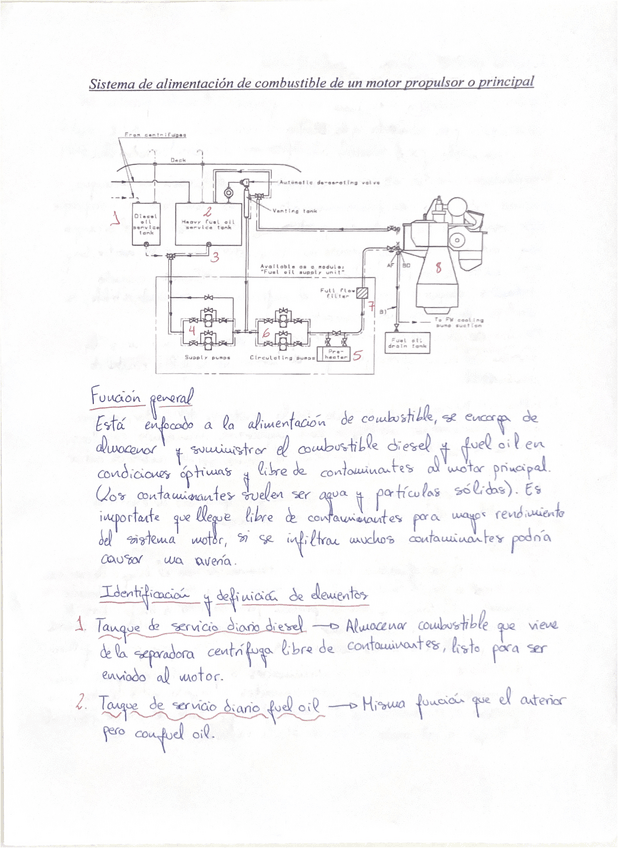 Sistema de alimentación de combustible de un motor propulsor o principal
From centrifuges
Deck
Automatic de-aerating valve
1
Diesel
oil
service
tank
2
Heavy fuel oil
service tank
Venting tank
3
Available as a module:
"Fuel oil supply unit"
Full flow
filter
7
8
AF
BD
4
6
Pre-
heater
5
Supply pumps
Circulating pumps
B)
To FW cooling
pump suction
Fuel oil
drain tank
Función general
Está enfocado a la alimentación de combustible, se encarga de
almacenar y suministrar el combustible diesel y fuel oil en
condiciones óptimas y libre de contaminantes al motor principal.
(Los contaminantes suelen ser agua y partículas sólidas). Es
importante que llegue libre de contaminantes para mayor rendimiento
del sistema motor, si se infiltran muchos contaminantes podría
causar una avería.
Identificación y definición de elementos
1. Tanque de servicio diario diesel → Almacenar combustible que viene
de la separadora centrífuga libre de contaminantes, listo para ser
enviado al motor.
2. Tanque de servicio diario fuel oil → Misma función que el anterior
pero con fuel oil.